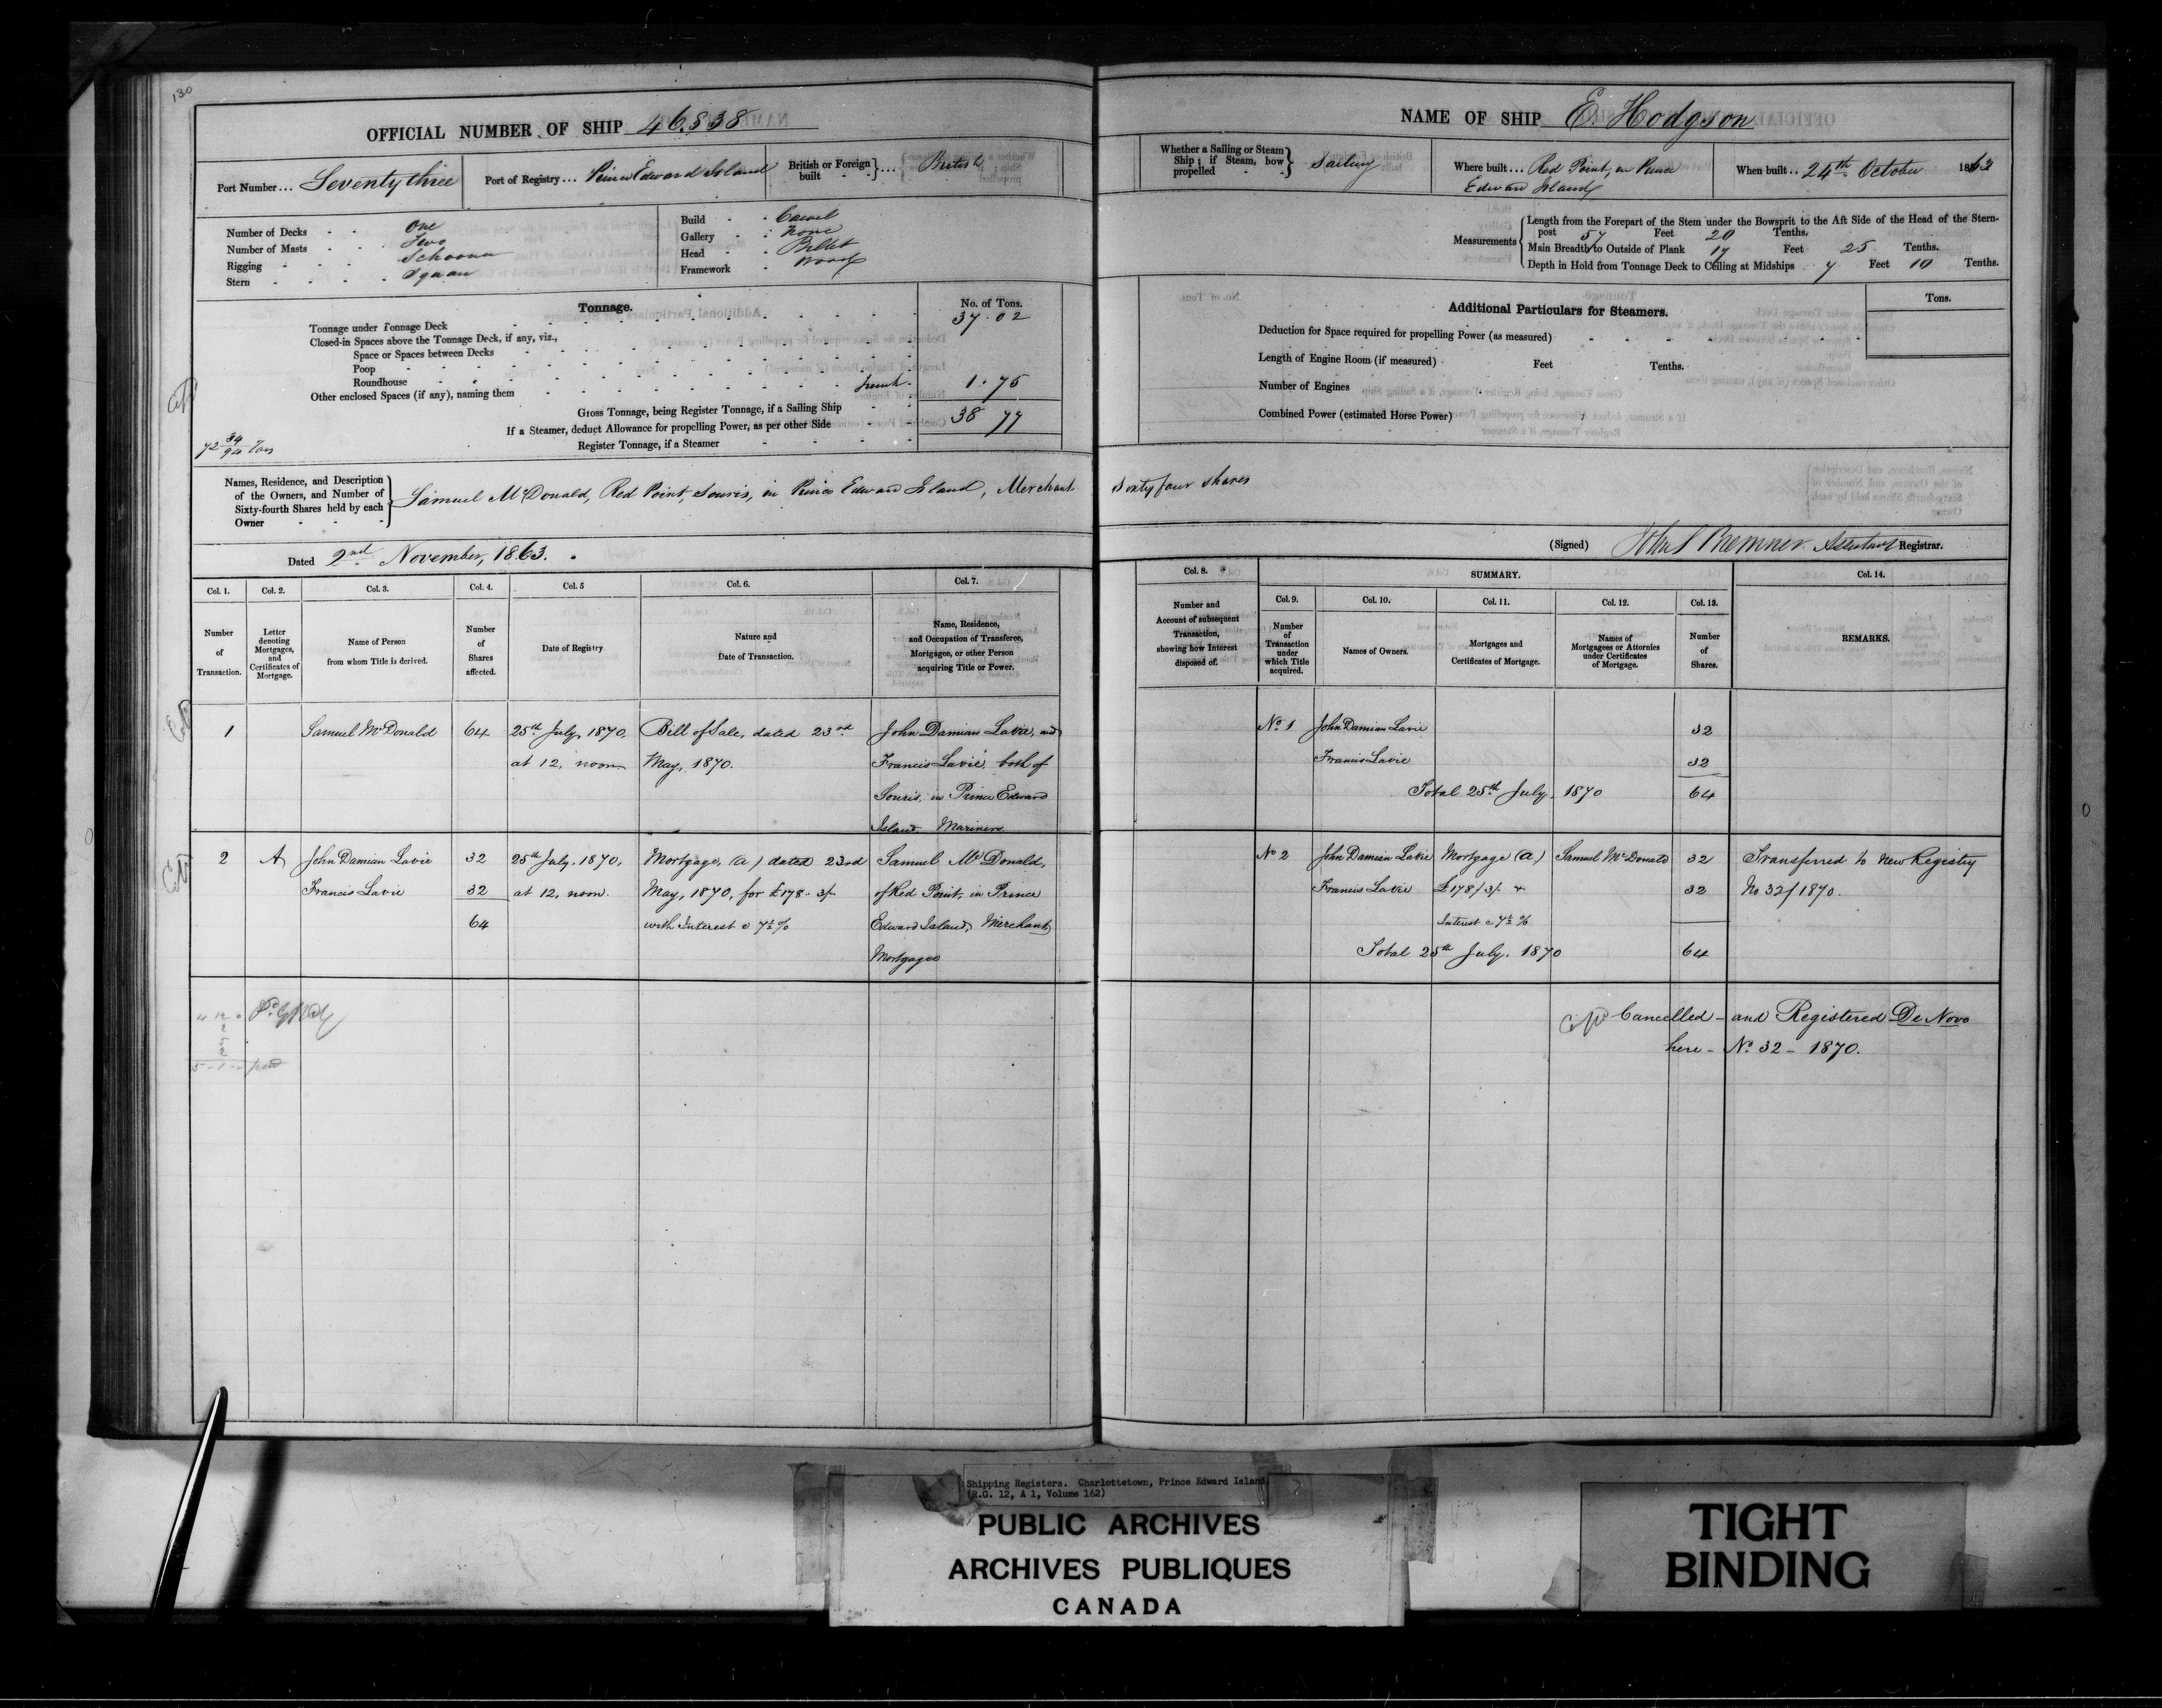 130
OFFICIAL NUMBER OF SHIP 46.838
Port Number... Seventy three
Port of Registry... Prince Edward Island
British or Foreign built } .... British
Number of Decks - - One
Number of Masts - - Two
Rigging - - Schooner
Stern - - Square
Build - - Carvel
Gallery - - None
Head - - Billet
Framework - Wood
Tonnage.
No. of Tons.
Tonnage under Tonnage Deck 37.02
Closed-in Spaces above the Tonnage Deck, if any, viz.,
Space or Spaces between Decks
Poop
Roundhouse
Other enclosed Spaces (if any), naming them 1.75
Gross Tonnage, being Register Tonnage, if a Sailing Ship 38 77
If a Steamer, deduct Allowance for propelling Power, as per other Side
Register Tonnage, if a Steamer
72 34/94 Tons
Names, Residence, and Description of the Owners, and Number of Sixty-fourth Shares held by each Owner } Samuel McDonald, Red Point, Souris, in Prince Edward Island, Merchant
Dated 2nd November, 1863.
Col. 1. Col. 2. Col. 3. Col. 4. Col. 5 Col. 6. Col. 7.
Number of Transaction.
Letter denoting Mortgages, and Certificates of Mortgage.
Name of Person from whom Title is derived.
Number of Shares affected.
Date of Registry
Nature and Date of Transaction.
Name, Residence, and Occupation of Transferee, Mortgagee, or other Person acquiring Title or Power.
1 Samuel McDonald 64 25th July, 1870. Bill of Sale, dated 23rd John Damian Lavie, and
at 12, noon May, 1870. Francis Lavie, both of
Souris, in Prince Edward
Island, Mariners
2 A John Damian Lavie 32 25th July, 1870, Mortgage, (a) dated 23rd Samuel McDonald,
Francis Lavie 32 at 12, noon. May, 1870, for £178 - 3/- of Red Point, in Prince
64 with Interest @ 7½% Edward Island, Merchant
Mortgagee
NAME OF SHIP E. Hodgson
Whether a Sailing or Steam Ship; if Steam, how propelled } Sailing
Where built... Red Point, in Prince Edward Island
When built.. 24th October 1863
Measurements
Length from the Forepart of the Stem under the Bowsprit to the Aft Side of the Head of the Stern-
post 57 Feet 20 Tenths.
Main Breadth to Outside of Plank 17 Feet 25 Tenths.
Depth in Hold from Tonnage Deck to Ceiling at Midships 7 Feet 10 Tenths.
Additional Particulars for Steamers.
Tons.
Deduction for Space required for propelling Power (as measured)
Length of Engine Room (if measured) Feet Tenths.
Number of Engines
Combined Power (estimated Horse Power)
Sixty four shares
(Signed) Bremner Assistant Registrar.
Col. 8. SUMMARY. Col. 14.
Number and Account of subsequent Transaction, showing how Interest disposed of.
Col. 9. Col. 10. Col. 11. Col. 12. Col. 13.
Number of Transaction under which Title acquired.
Names of Owners.
Mortgages and Certificates of Mortgage.
Names of Mortgagees or Attornies under Certificates of Mortgage.
Number of Shares.
REMARKS.
No 1 John Damian Lavie 32
Francis Lavie 32
Total 25th July, 1870 64
No 2 John Damian Lavie Mortgage (a) Samuel McDonald 32 Transferred to New Registry
Francis Lavie £178/3/- 32 No 32/1870.
Interest @ 7½%
Total 25th July, 1870 64
Cancelled - and Registered De Novo
here - No 32 - 1870.
Shipping Registers. Charlottetown, Prince Edward Island
(R.G. 12, A 1, Volume 162)
PUBLIC ARCHIVES
ARCHIVES PUBLIQUES
CANADA
TIGHT
BINDING